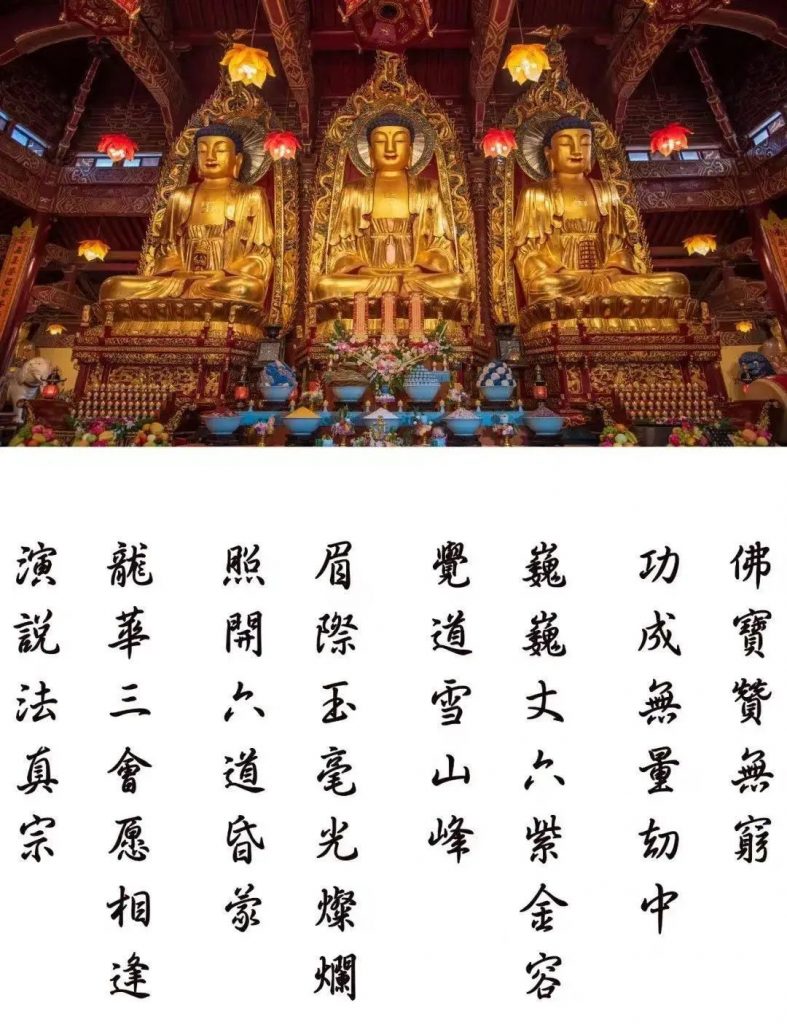 佛寶贊無窮
功成無量劫中
巍巍丈六紫金容
覺道雪山峰
眉際玉毫光燦爛
照開六道昏蒙
龍華三會愿相逢
演説法真宗